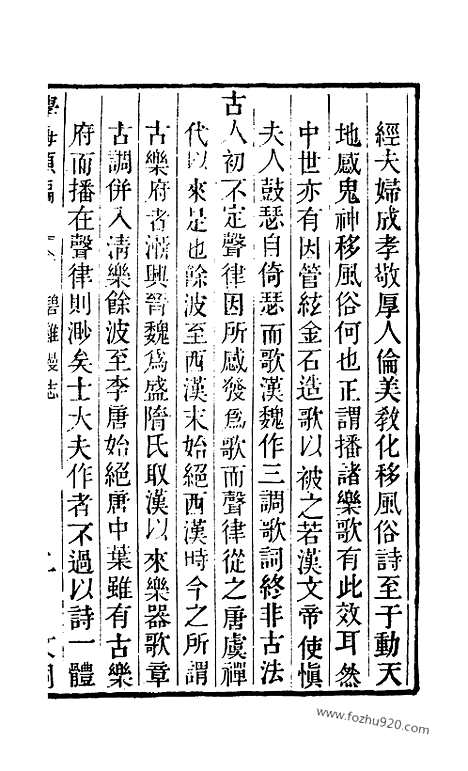 經夫婦成孝敬厚人倫美敎化移風俗詩至于動天
地感鬼神移風俗何也正謂播諸樂歌有此效耳然
中世亦有因管絃金石造歌以被之若漢文帝使愼
夫人鼓瑟自倚瑟而歌漢魏作三調歌詞終非古法
古人初不定聲律因所感發爲歌而聲律從之唐虞禪
代以來是也餘波至西漢末始絕西漢時今之所謂
古樂府者漸興晉魏爲盛隋氏取漢以來樂器歌章
古調併入淸樂餘波至李唐始絕唐中葉雖有古樂
府而播在聲律則渺矣士大夫作者不過以詩一體
碧雞漫志
www.fozhu920.com